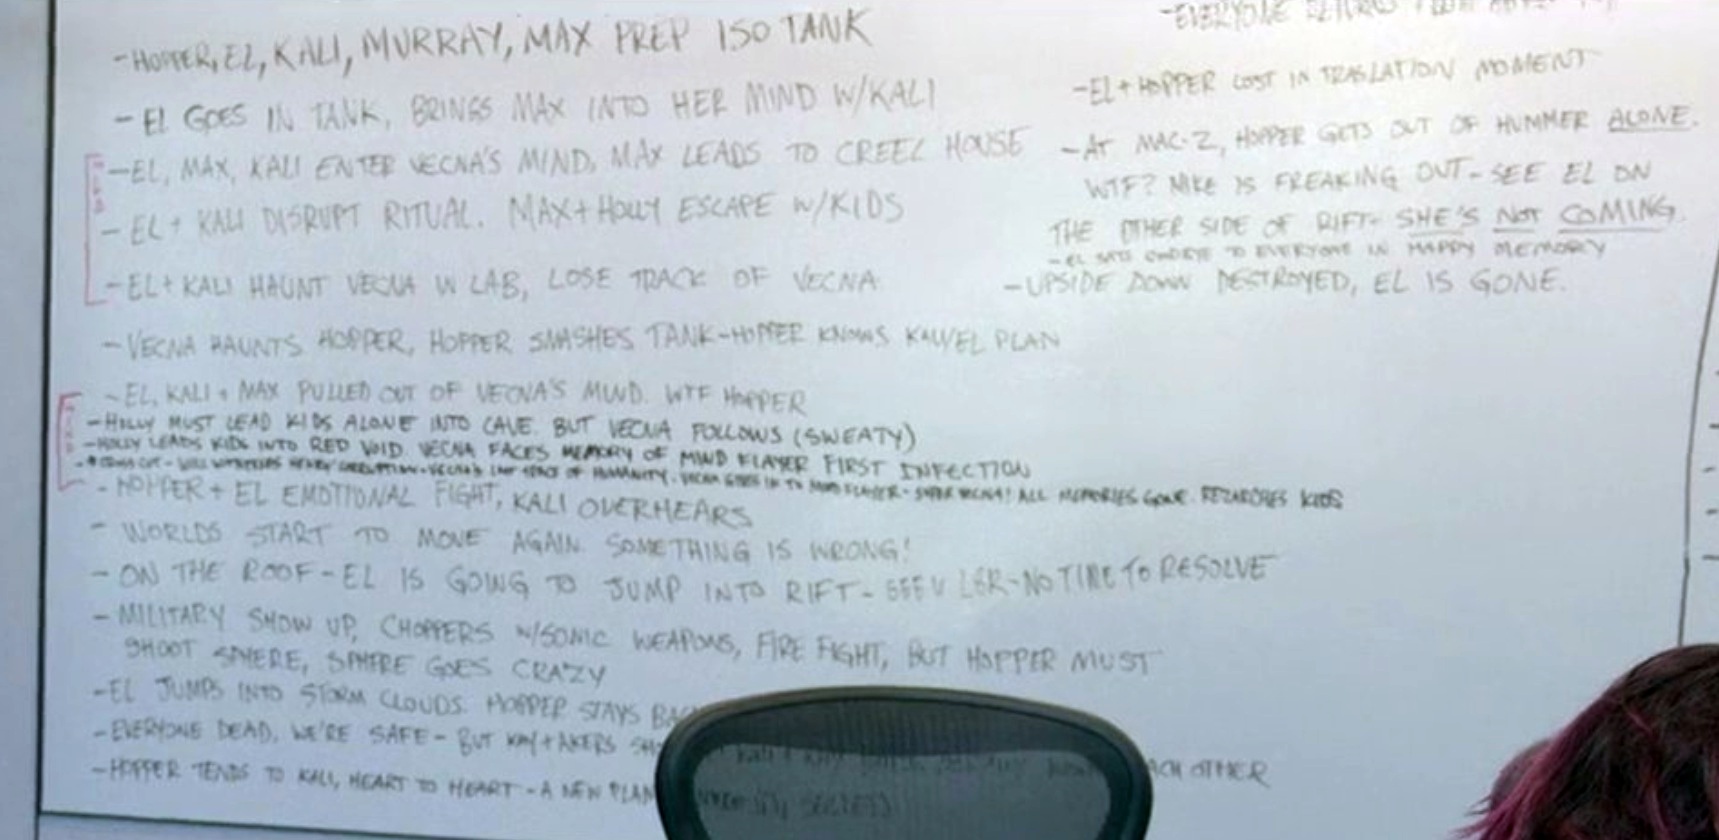 -HOPPER, EL, KALI, MURRAY, MAX PREP ISO TANK
- EL GOES IN TANK, BRINGS MAX INTO HER MIND W/KALI
-EL, MAX, KALI ENTER VECNA'S MIND, MAX LEADS TO CREEL HOUSE
- EL + KALI DISRUPT RITUAL. MAX+HOLLY ESCAPE W/KIDS
-EL+KALI HAUNT VECNA IN LAB, LOSE TRACK OF VECNA
-VECNA HAUNTS HOPPER, HOPPER SMASHES TANK-HOPPER KNOWS KALI/EL PLAN
-EL, KALI + MAX PULLED OUT OF VECNA'S MIND. WTF HOPPER
-HOLLY MUST LEAD KIDS ALONE INTO CAVE. BUT VECNA FOLLOWS (SWEATY)
-HOLLY LEADS KIDS INTO RED VOID. VECNA FACES MEMORY OF MIND FLAYER FIRST INFECTION
WILL WITNESSES HENRY OF HUMANITY. ALL MEMORIES GONE. KIDS
- HOPPER + EL EMOTIONAL FIGHT, KALI OVERHEARS
- WORLDS START TO MOVE AGAIN. SOMETHING IS WRONG!
- ON THE ROOF-EL IS GOING TO JUMP INTO RIFT- -NO TIME TO RESOLVE
- MILITARY SHOW UP, CHOPPERS W/SONIC WEAPONS, FIRE FIGHT, BUT HOPPER MUST
SHOOT SPHERE, SPHERE GOES CRAZY
-EL JUMPS INTO STORM CLOUDS. HOPPER STAYS
-EVERYONE DEAD. WE'RE SAFE- BUT KAY+AKERS
ACH OTHER
-HOPPER TENDS TO KALI, HEART TO HEART-A NEW PLAN
-EVERYONE
-EL+HOPPER LOST IN TRASLATION MOMENT
-AT MAC-Z, HOPPER GETS OUT OF HUMMER ALONE.
WTF? MIKE IS FREAKING OUT-SEE EL ON
THE OTHER SIDE OF RIFT- SHE'S NOT COMING.
-EL SAYS GOODBYE TO EVERYONE IN HAPPY MEMORY
-UPSIDE DOWN DESTROYED, EL IS GONE.